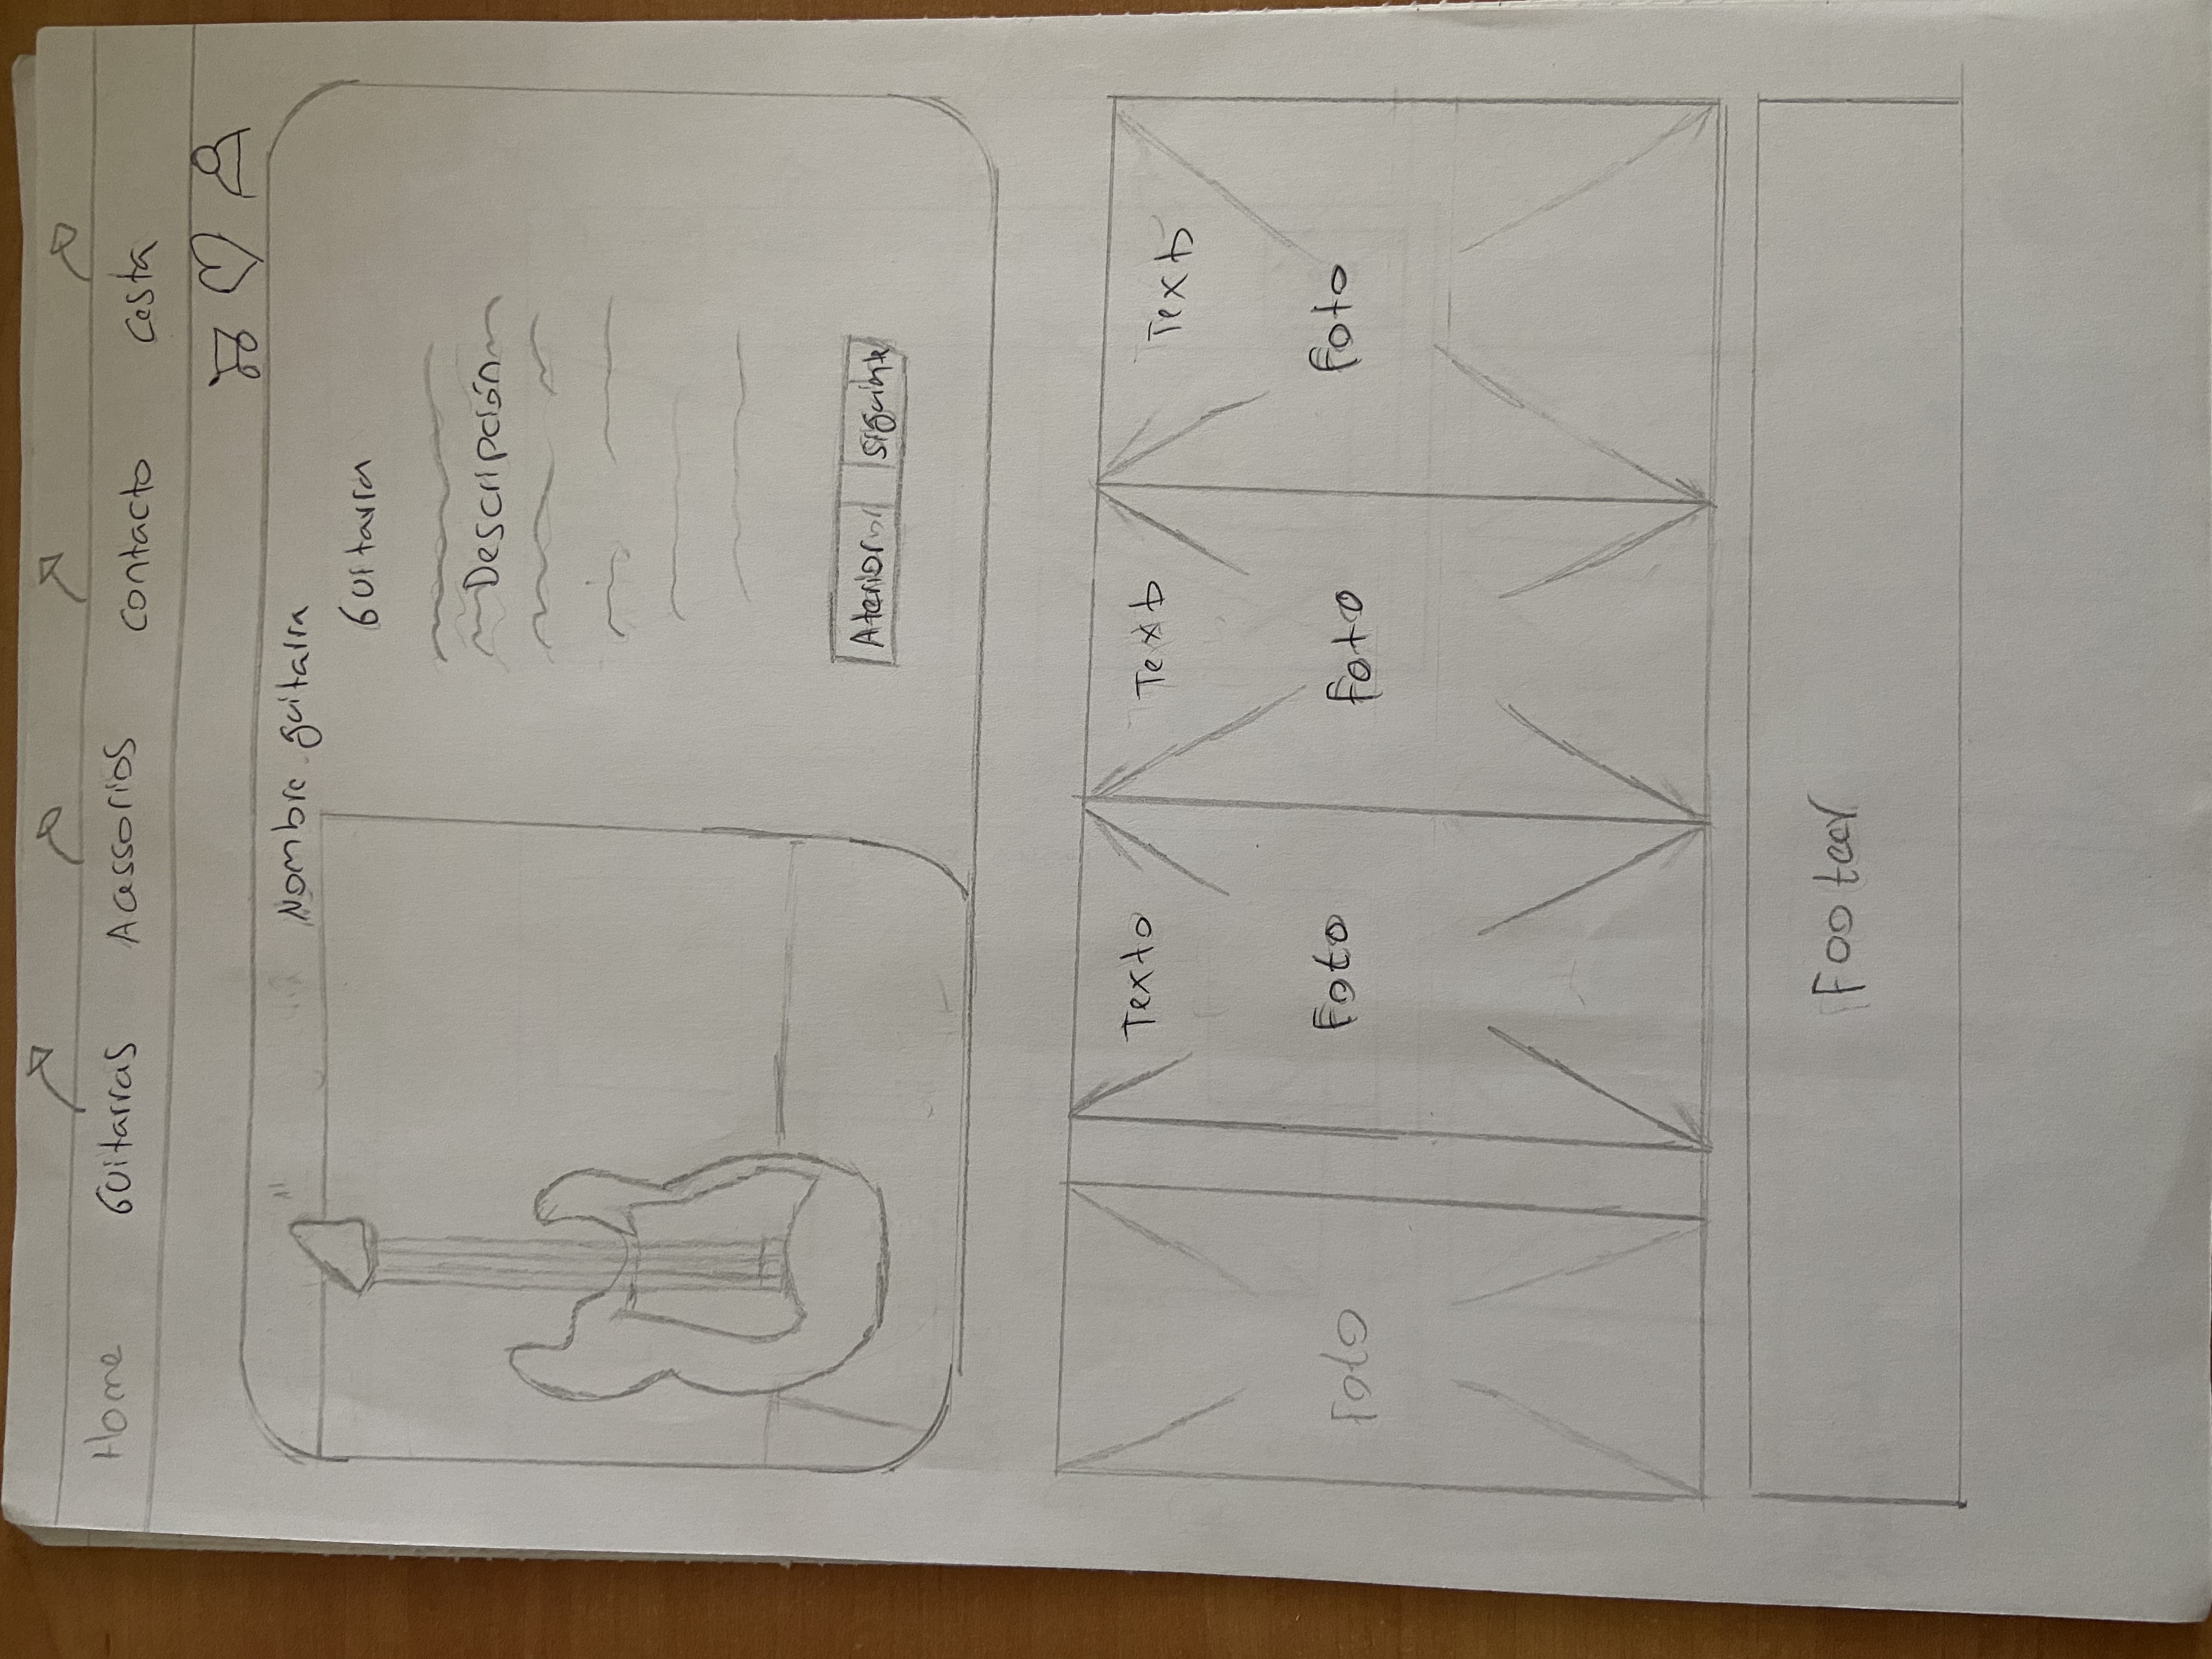 Home Guitarras Acessorios Contacto Cesta
Nombre guitarra
Guitarra
Descripción
Aterior siguinte
Texto Texto Texto
Foto Foto Foto Foto
Footeer